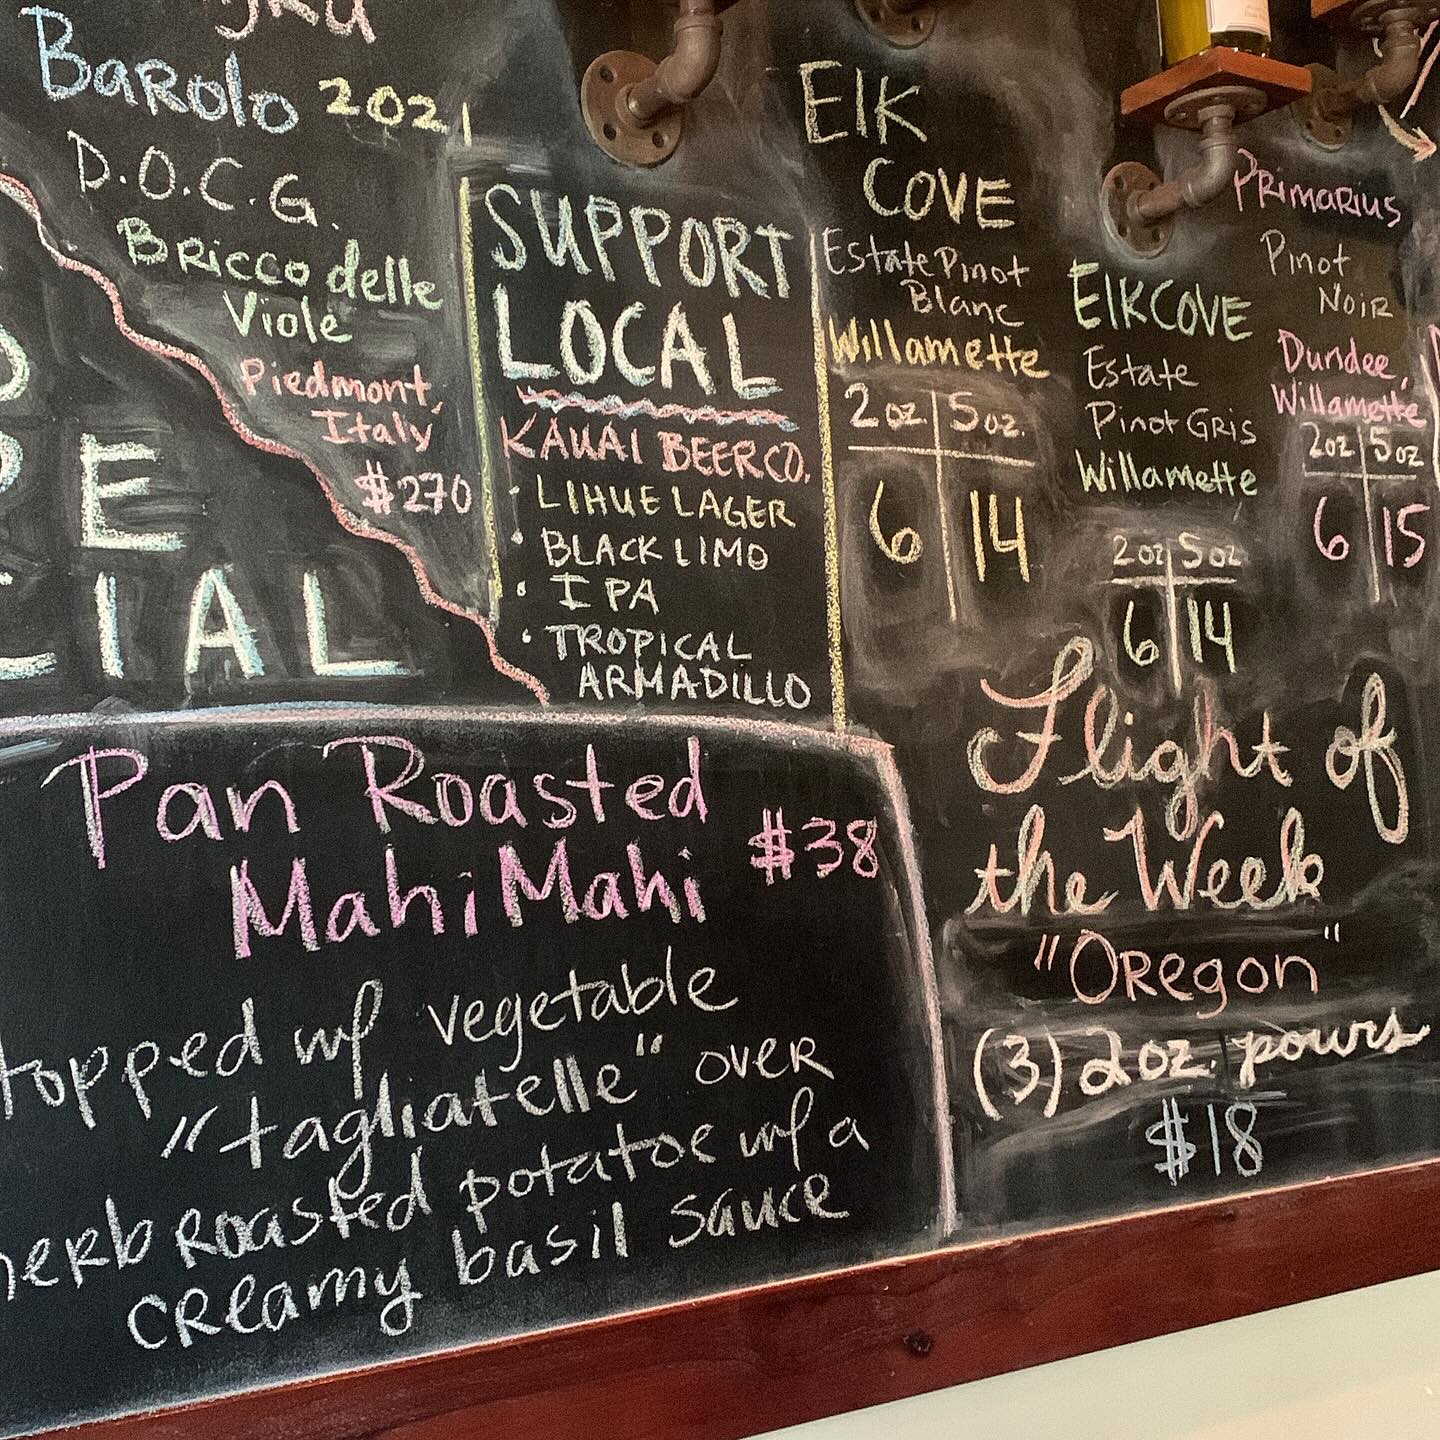 Barolo 2021
D.O.C.G.
Bricco delle
Viole
Piedmont,
Italy
$270
PE
CIAL
SUPPORT
LOCAL
KAUAI BEER CO.
· LIHUE LAGER
· BLACK LIMO
· IPA
· TROPICAL
ARMADILLO
Elk
COVE
Estate Pinot
Blanc
Willamette
2oz | 5oz.
6 | 14
ElkCOVE
Estate
Pinot Gris
Willamette
2oz | 5oz
6 | 14
PRIMARIUS
Pinot
NOIR
Dundee,
Willamette
2oz | 5oz
6 | 15
Flight of
the Week
"Oregon"
(3) 2oz. pours
$18
Pan Roasted
Mahi Mahi $38
topped w/ vegetable
"tagliatelle" over
herb roasted potatoe w/ a
creamy basil sauce